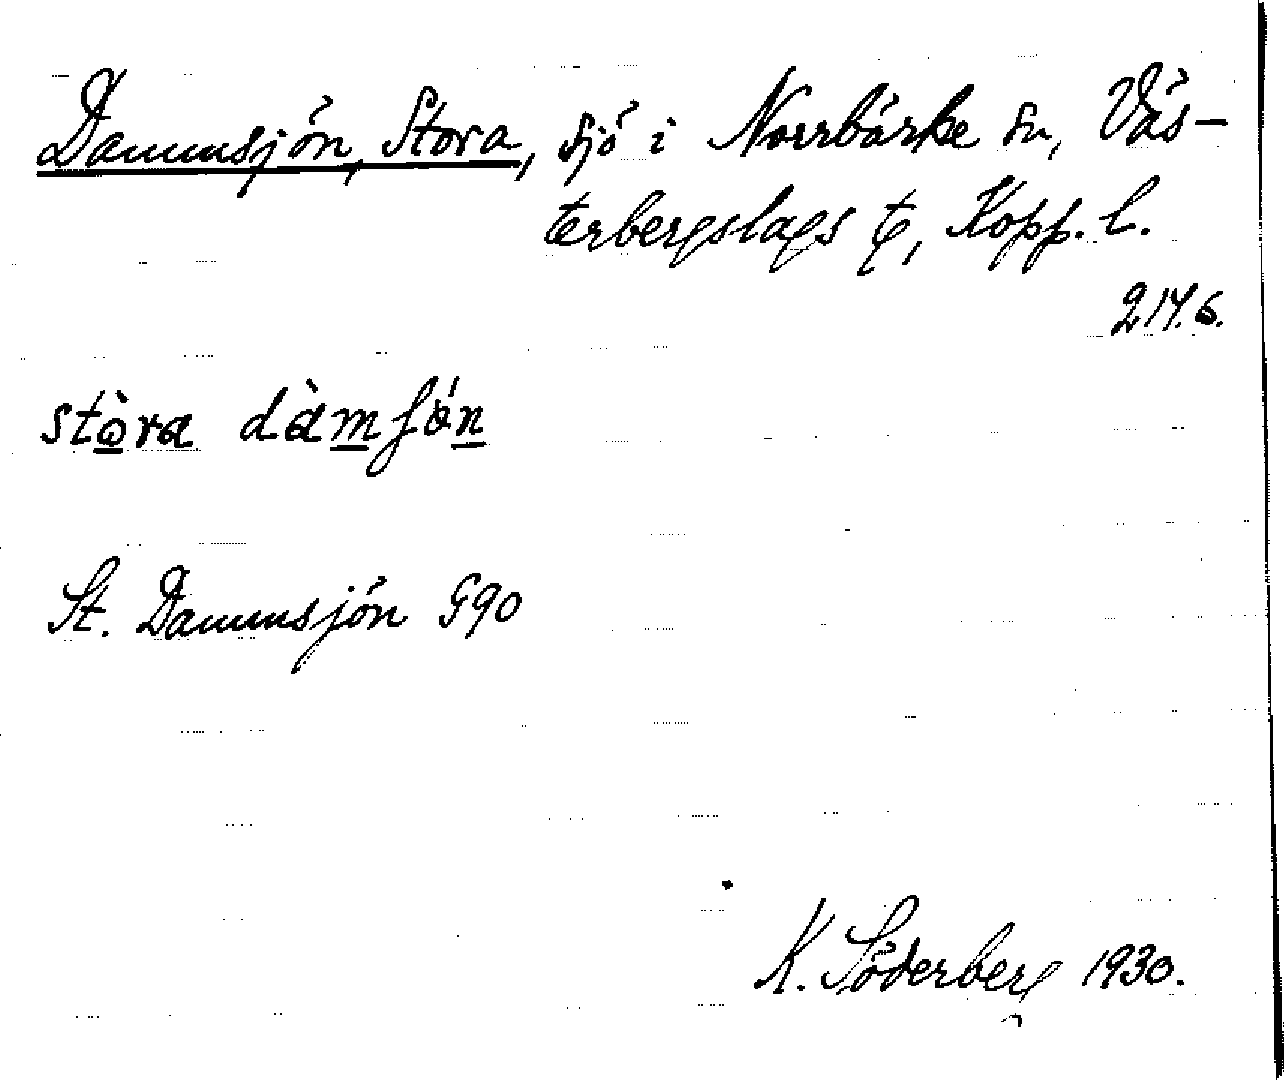 Dammsjön, Stora, sjö i Norrbärke sn, Väs-
terbergslags t, Kopp. l.
214.6.
stòra dàmʃö́n
St. Dammsjön G90
K. Söderberg 1930.